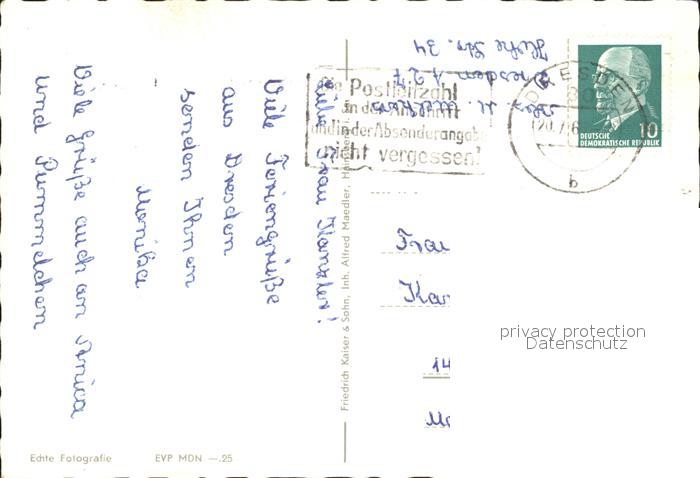 Liebe Frau
Viele Feriengrüße
aus Dresden
senden Ihnen
Monika
Viele Grüße auch an Anica
und Pummelchen
Dresden A 27
Hohe Str. 34
Die Postleitzahl
in der Anschrift
und in der Absenderangabe
nicht vergessen!
DRESDEN
20.7.6
b
10
DEUTSCHE
DEMOKRATISCHE REPUBLIK
Frau
Ka
14
privacy protection
Datenschutz
Friedrich Kaiser & Sohn, Inh. Alfred Maedler,
Echte Fotografie
EVP MDN —.25